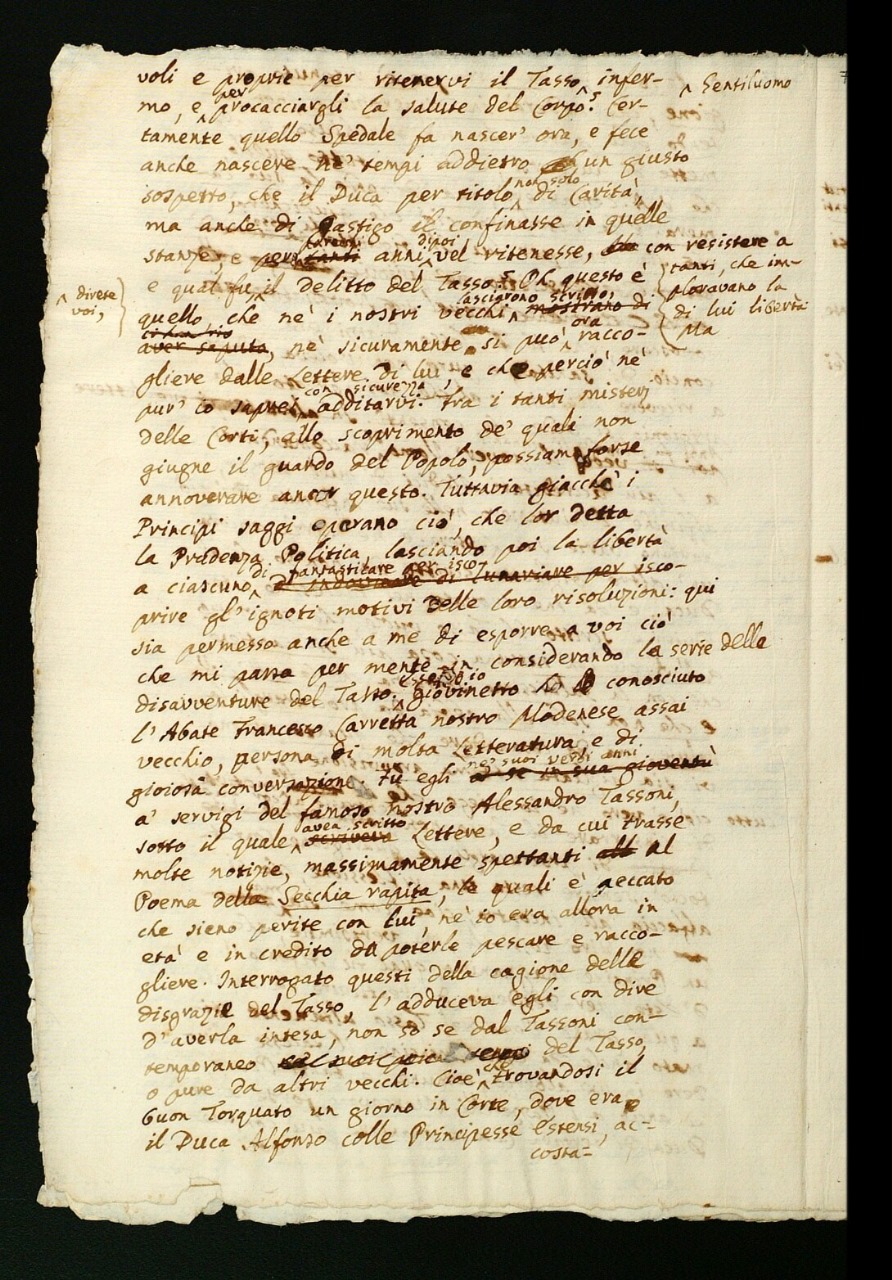 voli e proprie per ritenervi il Tasso ^ infer-
^ Gentiluomo
mo, e ^ per procacciargli la salute del Corpo? Cer-
tamente quello Spedale fa nascer' ora, e fece
anche nascere ne' tempi addietro un giusto
sospetto, che il Duca per titolo ^ non solo di Carità,
ma anche di Gastigo il confinasse in quelle
stanze, e per tanti anni ^ dipoi vel ritenesse, con resistere a
tanti, che im-
ploravano la
di lui libertà
Ma
e qual fu il delitto del Tasso? Oh questo è
^ direte
voi,
quello, che nè i nostri vecchi ^ lasciarono scritto, mostrano di
aver saputo, nè sicuramente si può ^ ora racco-
gliere dalle Lettere di lui, e che perciò nè
pur' io saprei ^ con sicurezza additarvi. Fra i tanti misterj
delle Corti, allo scoprimento de' quali non
giugne il guardo del Popolo, possiam forse
annoverare ancor questo. Tuttavia giacchè i
Principi saggi operano ciò, che lor detta
la Prudenza Politica, lasciando poi la libertà
a ciascuno ^ di fantasticare per isco- di lunariare per isco-
prire gl' ignoti motivi delle loro risoluzioni: qui
sia permesso anche a me di esporre a voi ciò
che mi passa per mente in considerando la serie delle
disavventure del Tasso. ^ Essend' io giovinetto ho conosciuto
l'Abate Francesco Carretta nostro Modenese assai
vecchio, persona di molta Letteratura, e di
gioiosa conversazione. Fu egli ne' suoi verdi anni in sua gioventù
a' servigi del famoso nostro Alessandro Tassoni,
sotto il quale ^ avea scritto scriveva Lettere, e da cui trasse
molte notizie, massimamente spettanti al
Poema della Secchia rapita, le quali è peccato
che sieno perite con lui, nè io era allora in
età e in credito da poterle pescare e racco-
gliere. Interrogato questi della cagione delle
disgrazie del Tasso, l'adduceva egli con dire
d'averla intesa, non so se dal Tassoni con-
temporaneo del Tasso,
o pure da altri vecchi. Cioè ^ che trovandosi il
buon Torquato un giorno in Corte, dove era
il Duca Alfonso colle Principesse Estensi, ac-
costa=